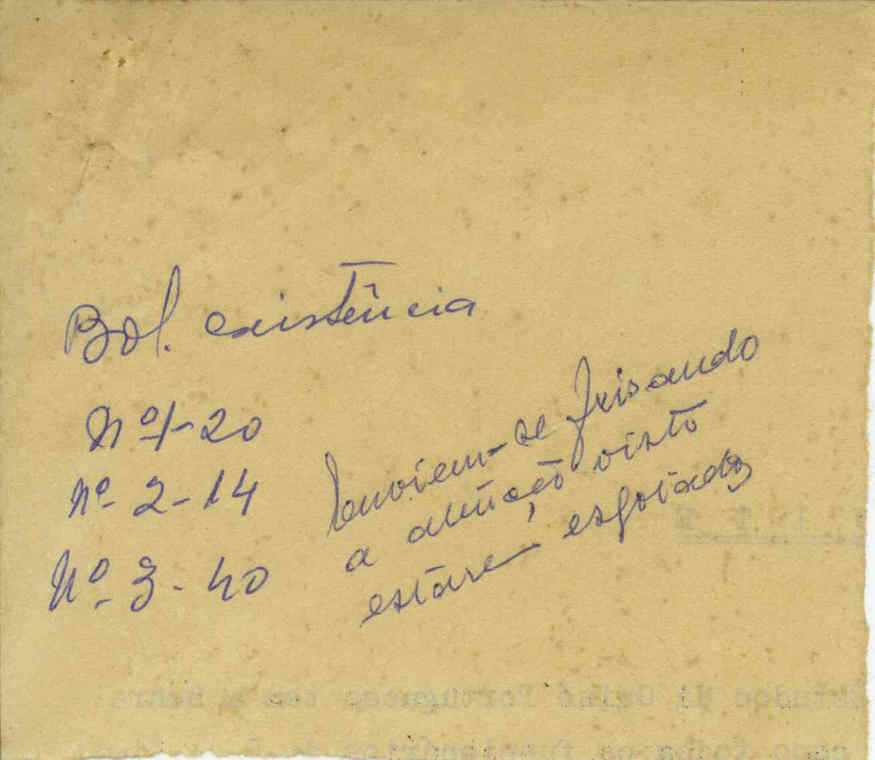 Bol. existência
Nº 1-20
Nº 2-14
Nº 3-40
Enviem-se frisando
a atenção visto
estarem esgotados